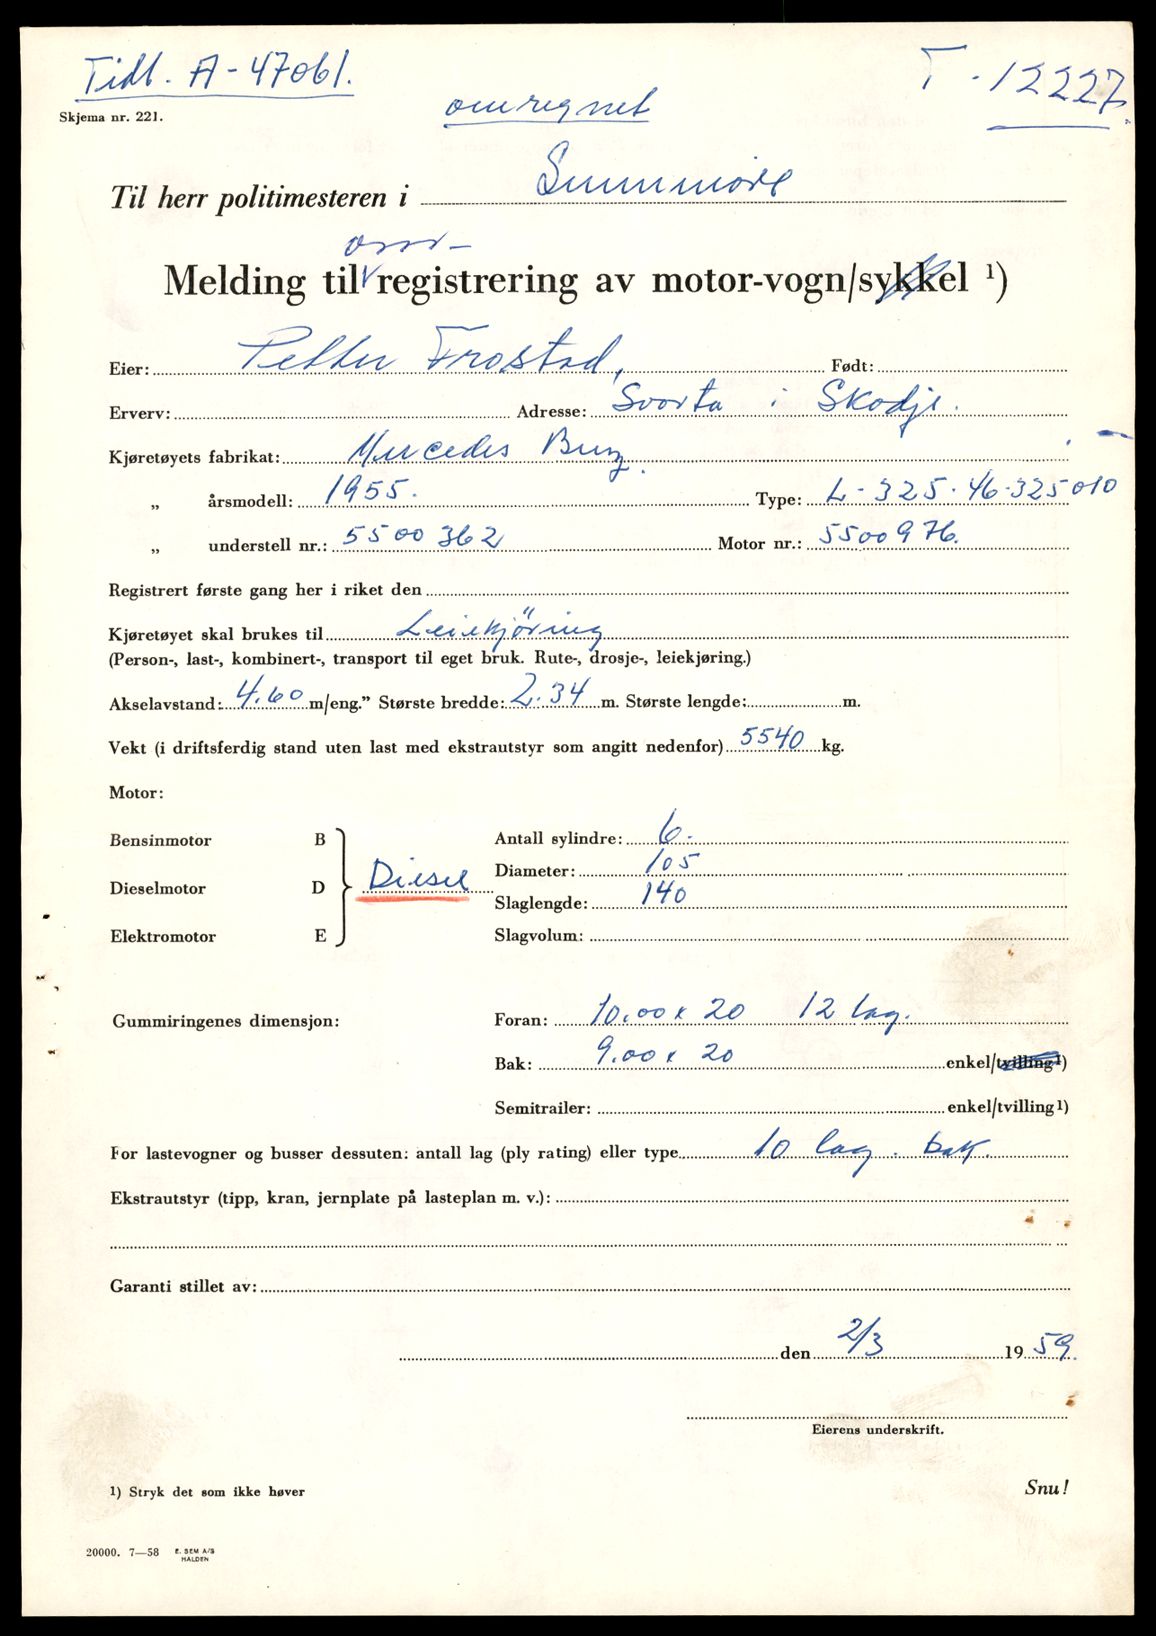 Tidl. A-47061.
T-12227.
Skjema nr. 221.
omregnet
Til herr politimesteren i Sunnmöre
om-
Melding til registrering av motor-vogn/sykkel ¹)
Eier: Petter Frostad, Født:
Erverv: Adresse: Svorta i Skodje.
Kjøretøyets fabrikat: Mercedes Benz.
„ årsmodell: 1955. Type: L-325-46-325010
„ understell nr.: 5500362 Motor nr.: 5500976.
Registrert første gang her i riket den
Kjøretøyet skal brukes til Leiekjöring
(Person-, last-, kombinert-, transport til eget bruk. Rute-, drosje-, leiekjøring.)
Akselavstand: 4.60 m/eng.” Største bredde: 2.34 m. Største lengde: m.
Vekt (i driftsferdig stand uten last med ekstrautstyr som angitt nedenfor) 5540 kg.
Motor:
Bensinmotor B
Dieselmotor D
Elektromotor E
Diesel
Antall sylindre: 6.
Diameter: 105
Slaglengde: 140
Slagvolum:
Gummiringenes dimensjon: Foran: 10.00 x 20 12 lag.
Bak: 9.00 x 20 enkel/tvilling¹)
Semitrailer: enkel/tvilling¹)
For lastevogner og busser dessuten: antall lag (ply rating) eller type 10 lag. bak.
Ekstrautstyr (tipp, kran, jernplate på lasteplan m. v.):
Garanti stillet av:
den 2/3 1959.
Eierens underskrift.
¹) Stryk det som ikke høver
Snu!
20000. 7—58 E. SEM A/S
HALDEN